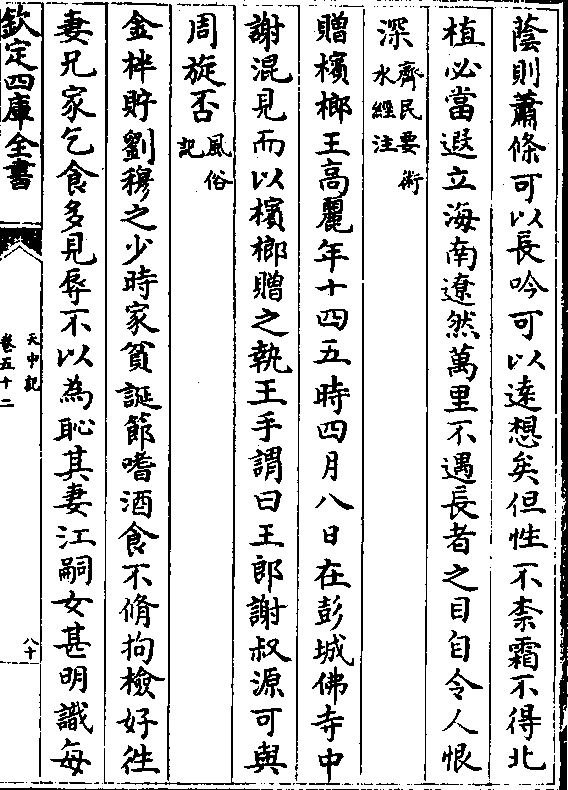 蔭則蕭條可以長吟可以逺想矣但性不柰霜不得北
植必當遐立海南遼然萬里不遇長者之目自令人恨
深齊民要術水經注
贈檳榔王高麗年十四五時四月八日在彭城佛寺中
謝混見而以檳榔贈之執王手謂曰王郎謝叔源可與
周旋否風俗記
金柈貯劉穆之少時家貧誕節嗜酒食不脩拘檢好往
妻兄家乞食多見辱不以為恥其妻江嗣女甚明識每
欽定四庫全書
天中記
卷五十二
八十